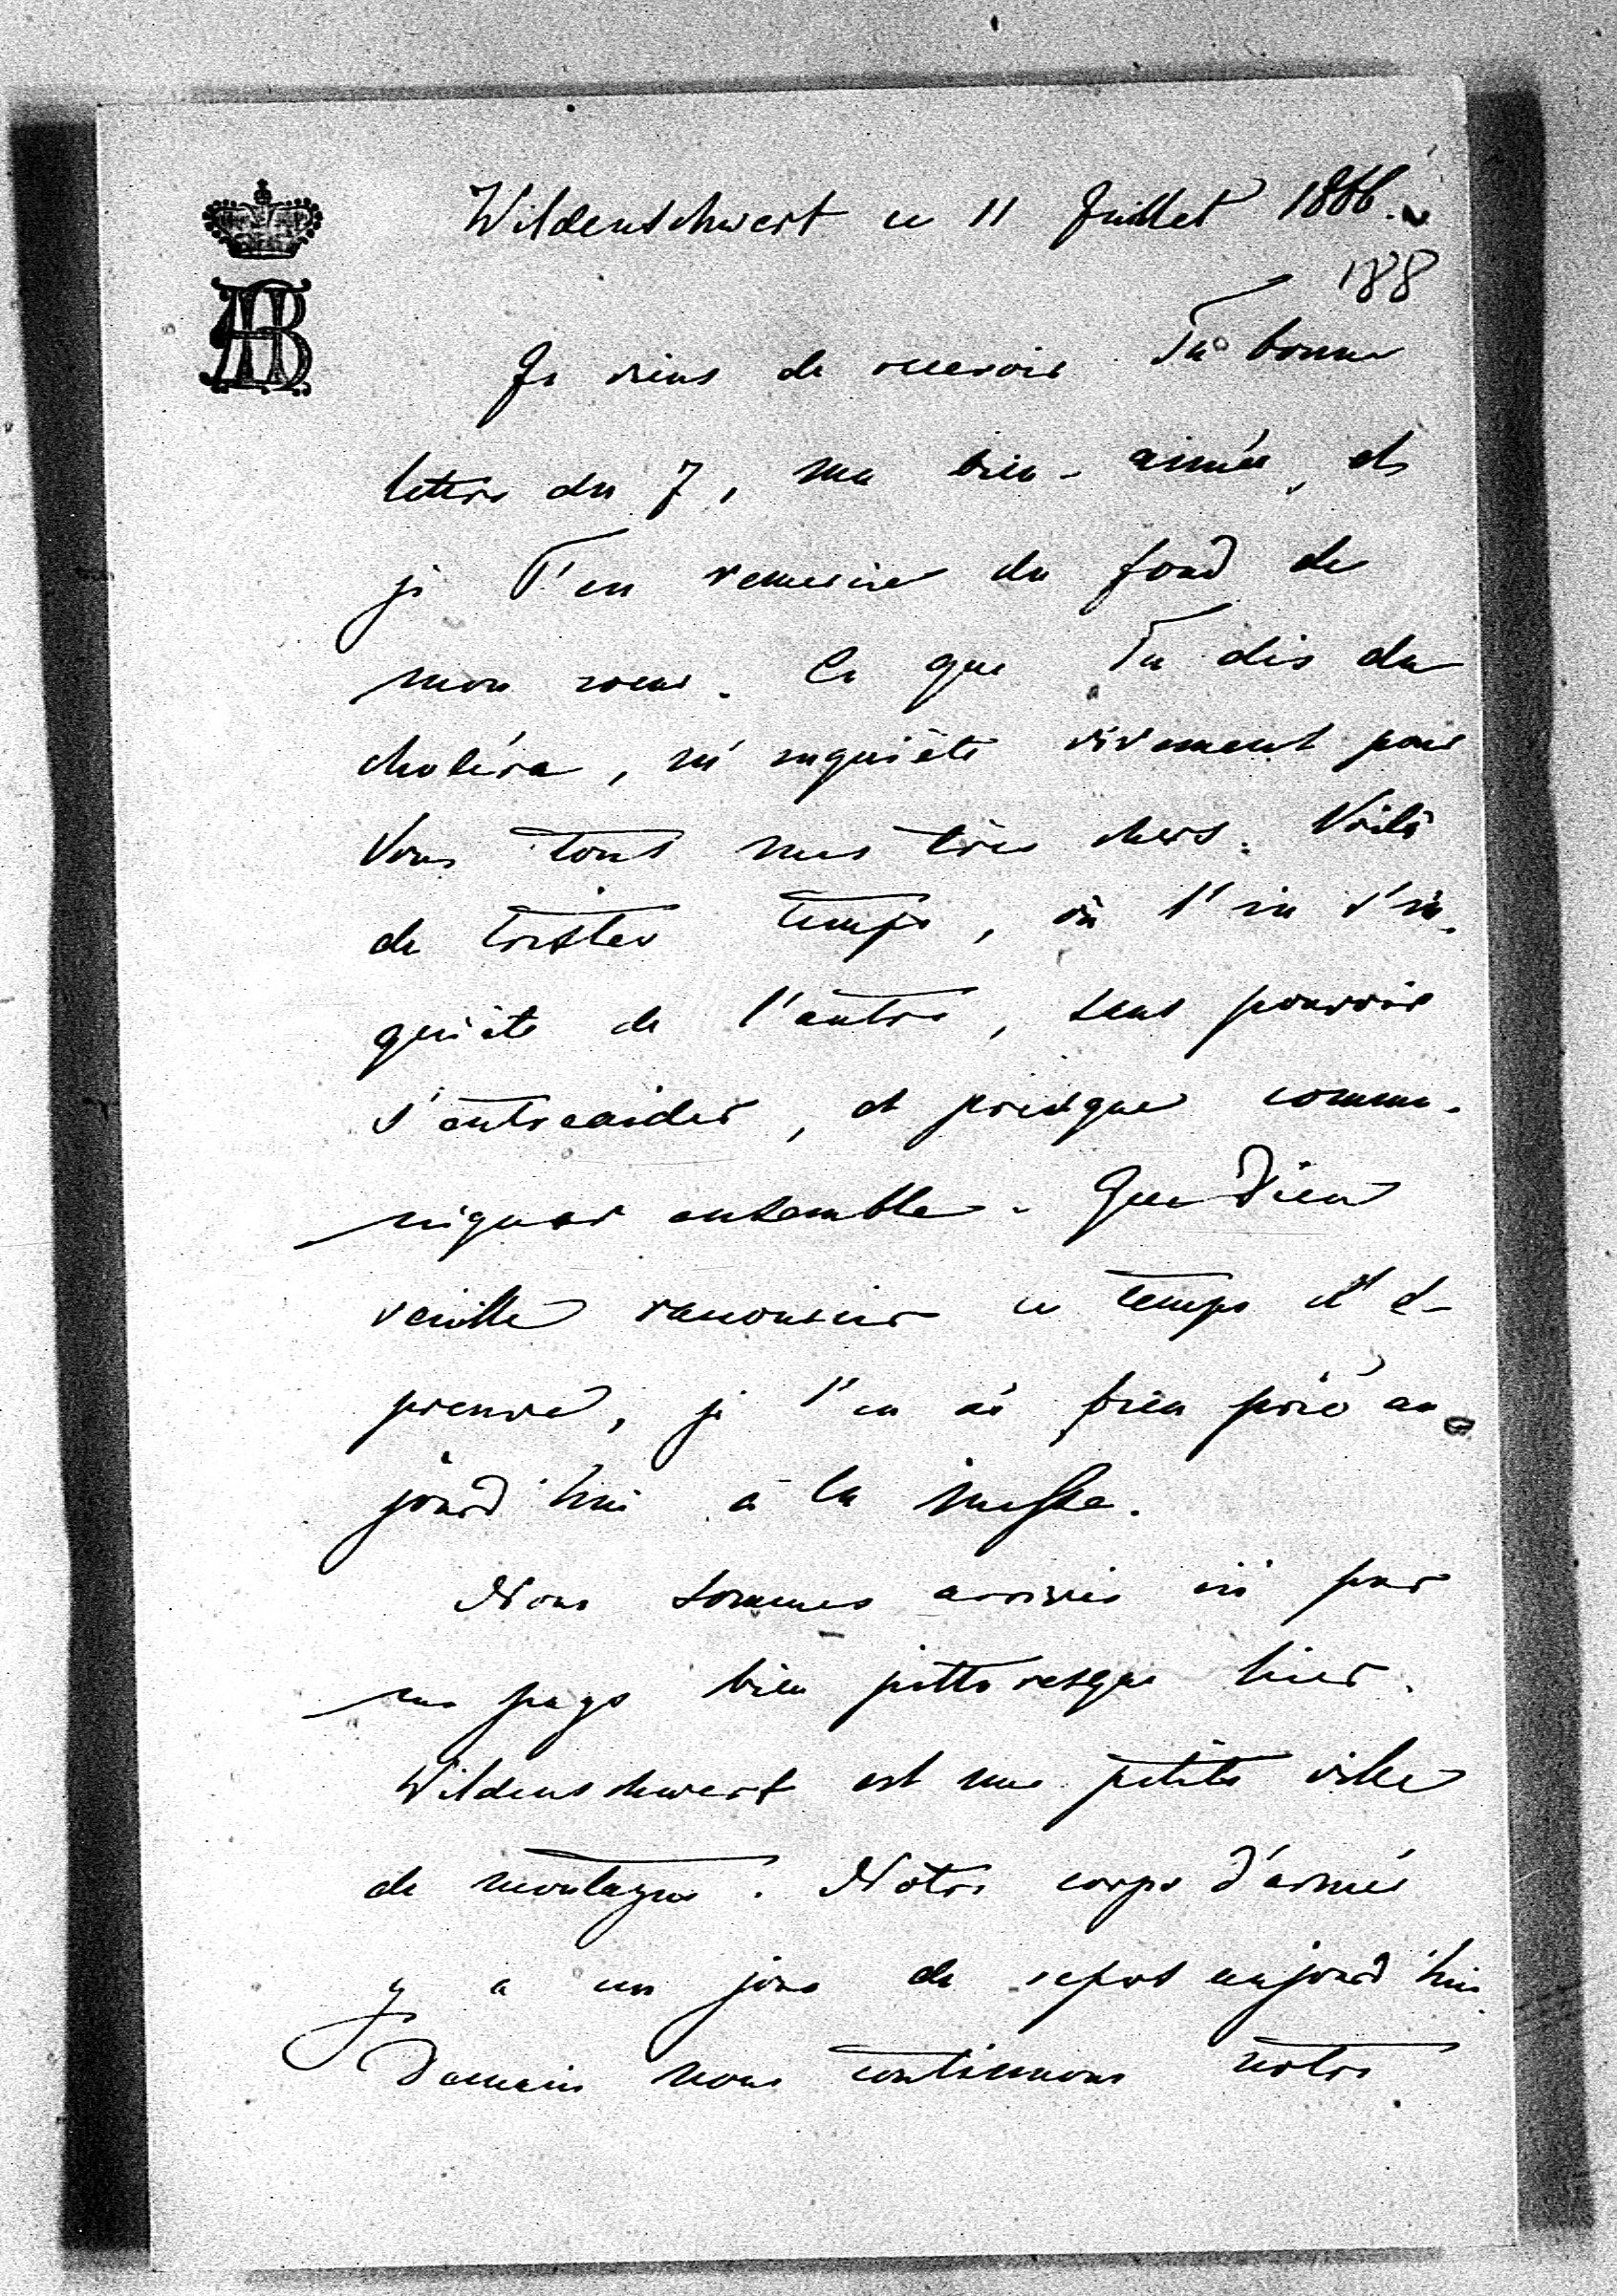 Wildenschwert ce 11 Juillet 1866.
188
AB
Je viens de recevoir Ta bonne
lettre du 7, ma bien-aimée, et
je T'en remercie du fond de
mon coeur. Ce que Tu dis du
choléra, m'inquiète vivement pour
Vous tous mes très chers. Voilà
de tristes temps, où l'un s'in-
quiète de l'autre, sans pouvoir
s'entreaider, et presque commu-
niquer ensemble. Que Dieu
veuille raccourcir ce temps d'é-
preuve, je l'en ai bien prié au-
jourd'hui à la messe.
Nous sommes arrivés ici par
un pays bien pittoresque hier.
Wildenschwert est une petite ville
de montagne. Notre corps d'armée
y a un jour de repos aujourd'hui
Demain nous continuons notre